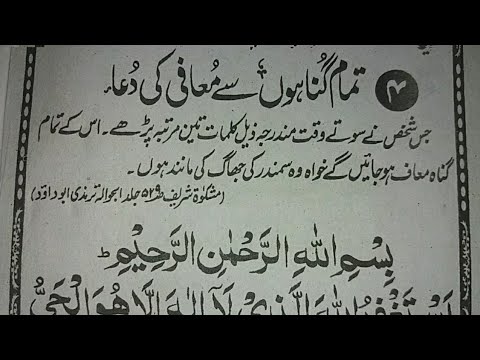 ۴ تمام گناہوں سے معافی کی دُعا
جس شخص نے سوتے وقت مندرجہ ذیل کلمات تین مرتبہ پڑھے۔ اس کے تمام
گناہ معاف ہو جائیں گے خواہ وہ سمندر کی جھاگ کی مانند ہوں۔
(مشکوٰۃ شریف ص۵۲۹ جلد ۱ بحوالہ ترمذی ابو داؤد)
بِسْمِ اللهِ الرَّحْمٰنِ الرَّحِيْمِ ط
اَسْتَغْفِرُ اللهَ الَّذِیْ لَآ اِلٰهَ اِلَّا هُوَ الْحَیُّ